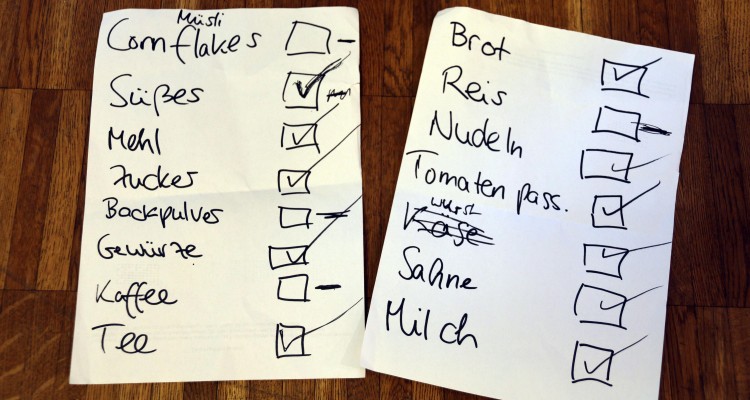 Müsli
Cornflakes
Süßes
Mehl
Zucker
Backpulver
Gewürze
Kaffee
Tee
Brot
Reis
Nudeln
Tomaten pass.
Wurst
Käse
Sahne
Milch